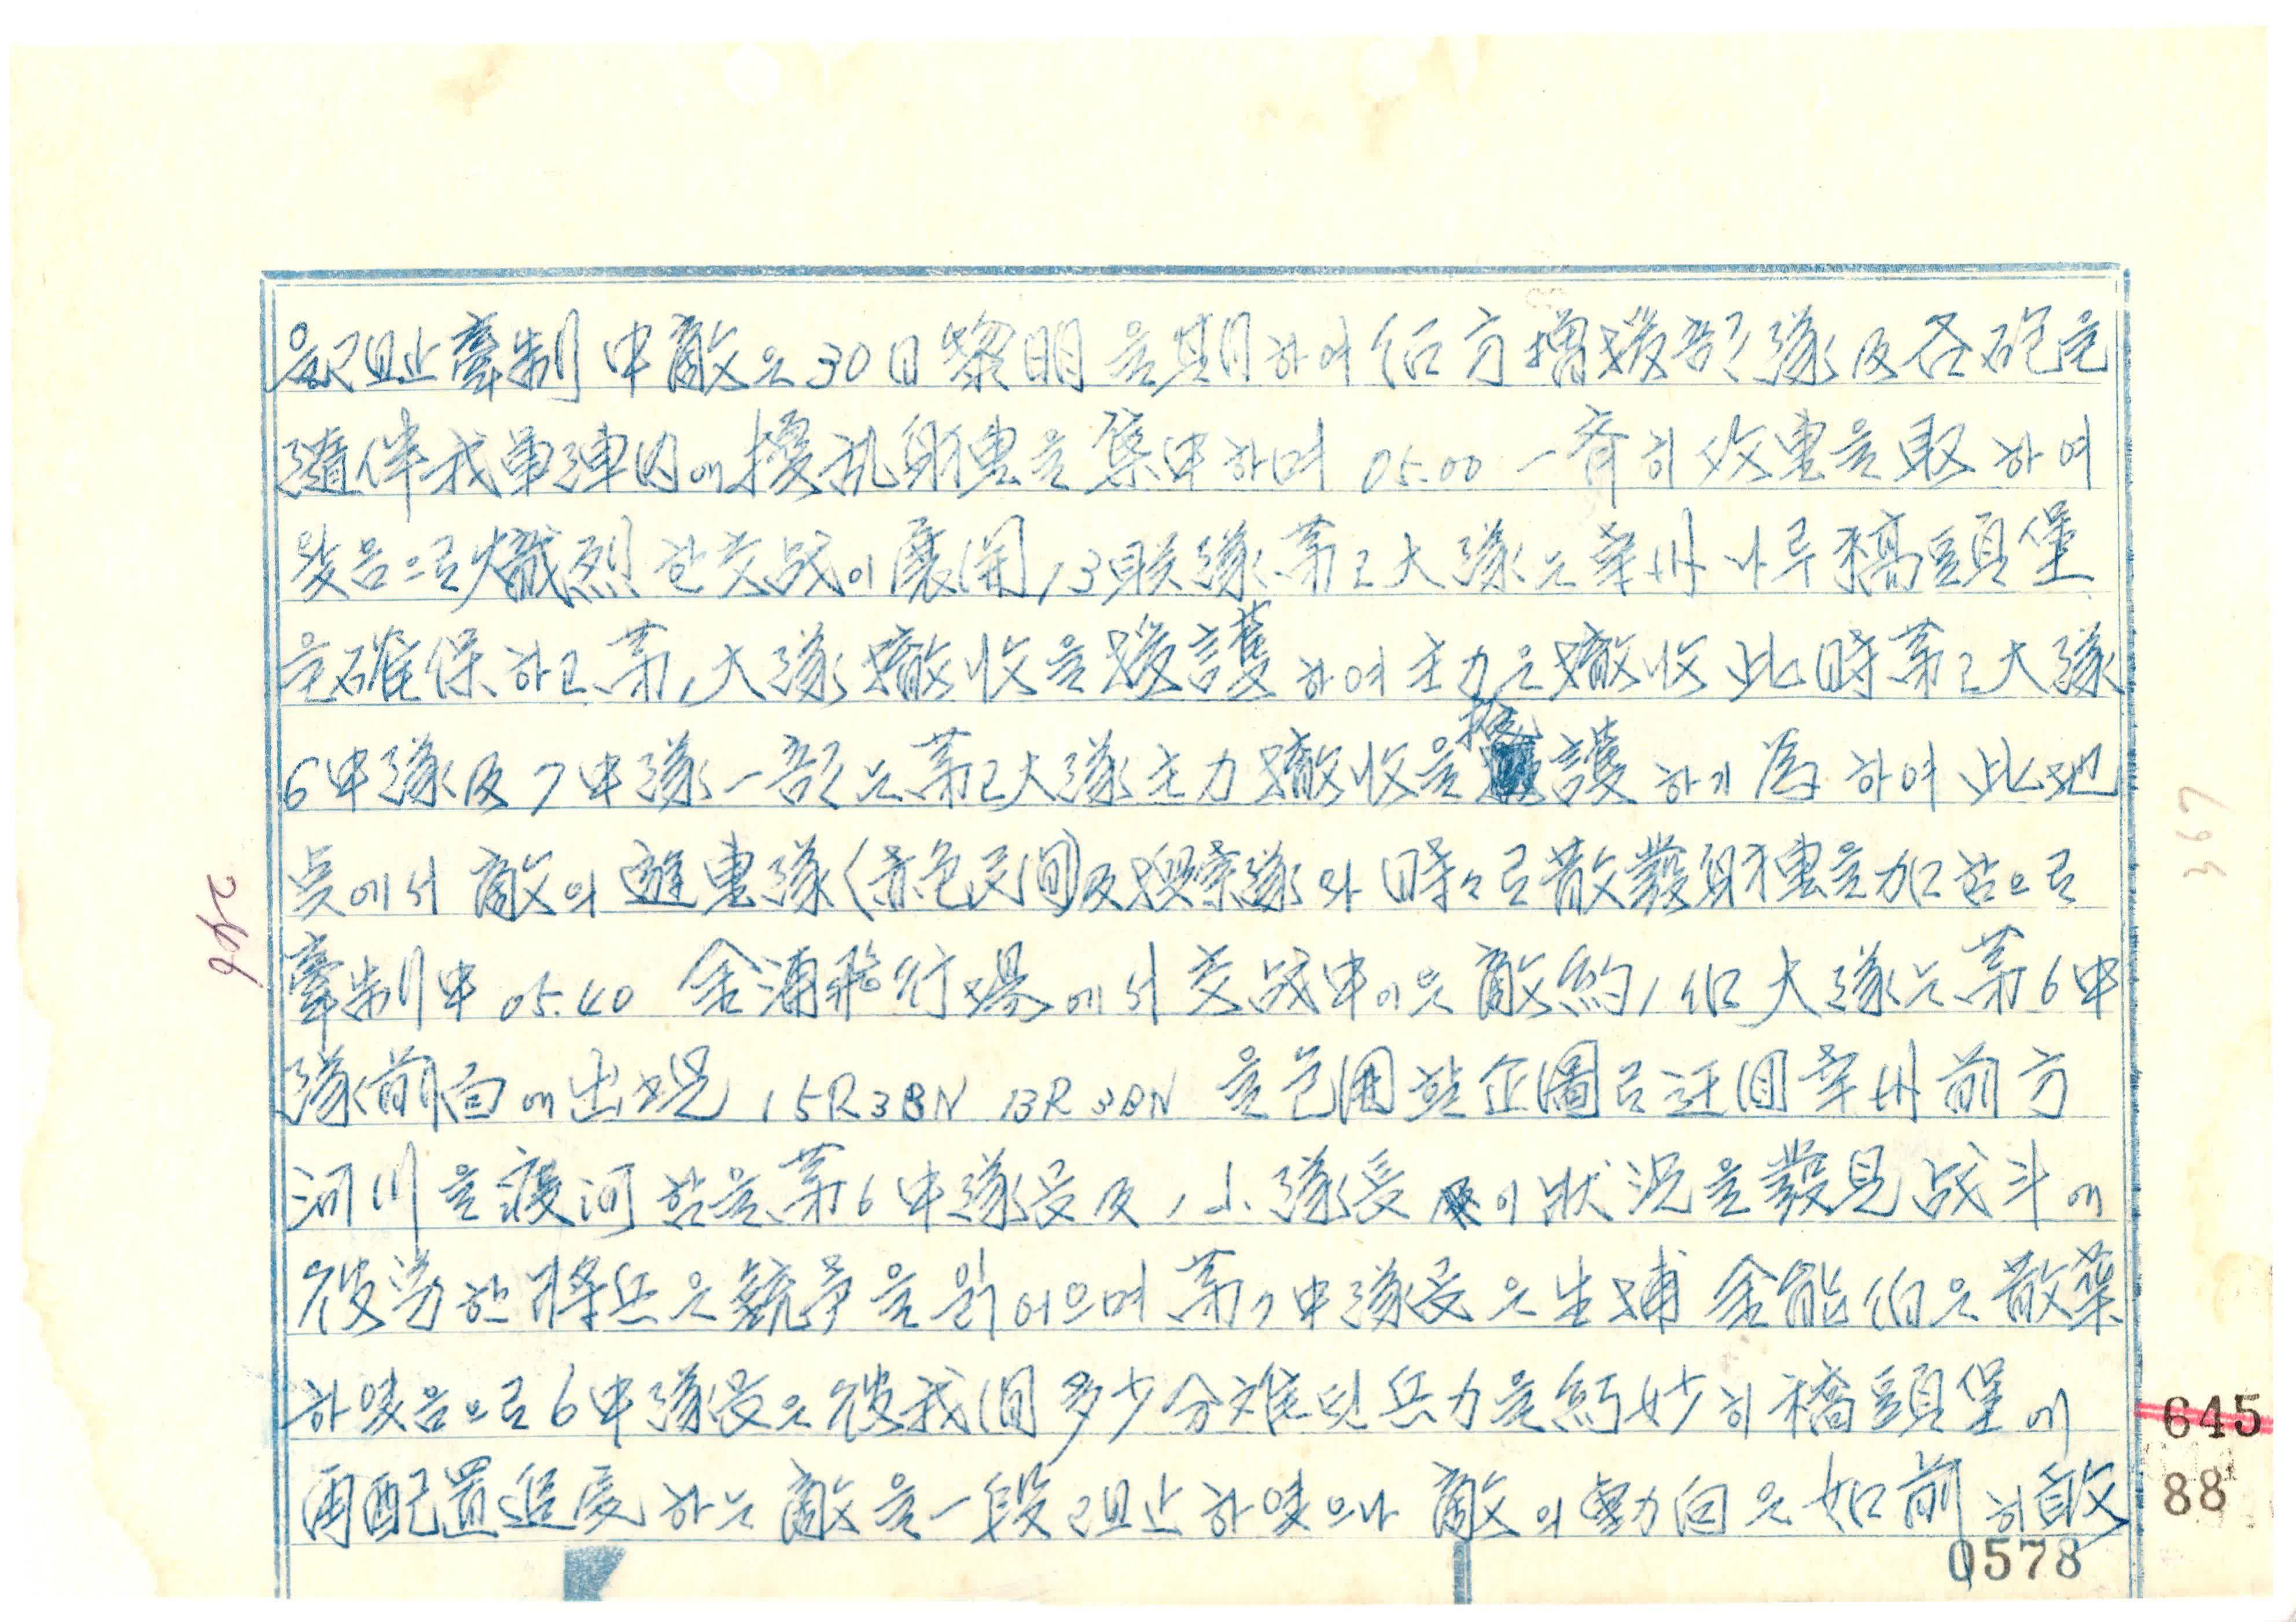 을 阻止牽制 中 敵은 30日 黎明을 期하여 후方 增援部隊 及 各砲를
隨伴 我軍陣內에 擾乱射擊을 集中하며 05.00 一齊히 攻擊을 取하여
왔음으로 熾烈한 交战이 展開 13联隊 第2大隊는 幸州 나루 橋頭堡
를 確保하고 第1大隊 撤收을 援護하여 主力은 撤收 此時 第2大隊
6中隊 及 7中隊 一部는 第2大隊 主力 撤收을 援護하기 為하여 此地
点에서 敵의 遊擊隊(赤色民间) 及 搜索隊와 時々로 散發射擊을 加함으로
牽制中 05.40 金浦飛行場에서 交战中이은 敵 約1個大隊는 第6中
隊 前面에 出現 15R3BN 13R3BN 을 包囲할 企圖로 迂回 幸州 前方
河川을 渡河함을 第6中隊長 及 1小隊長이 狀況을 發見 战斗에
疲労한 將兵은 競争을 잃어으며 第7中隊長은 生捕 金能伯은 散葉
하였음으로 6中隊長은 彼我间 多少 分離된 兵力을 巧妙히 橋頭堡에
再配置 追尾하는 敵을 一段 阻止하였으나 敵의 動向은 如前히 敢
246
367
645
88
0578